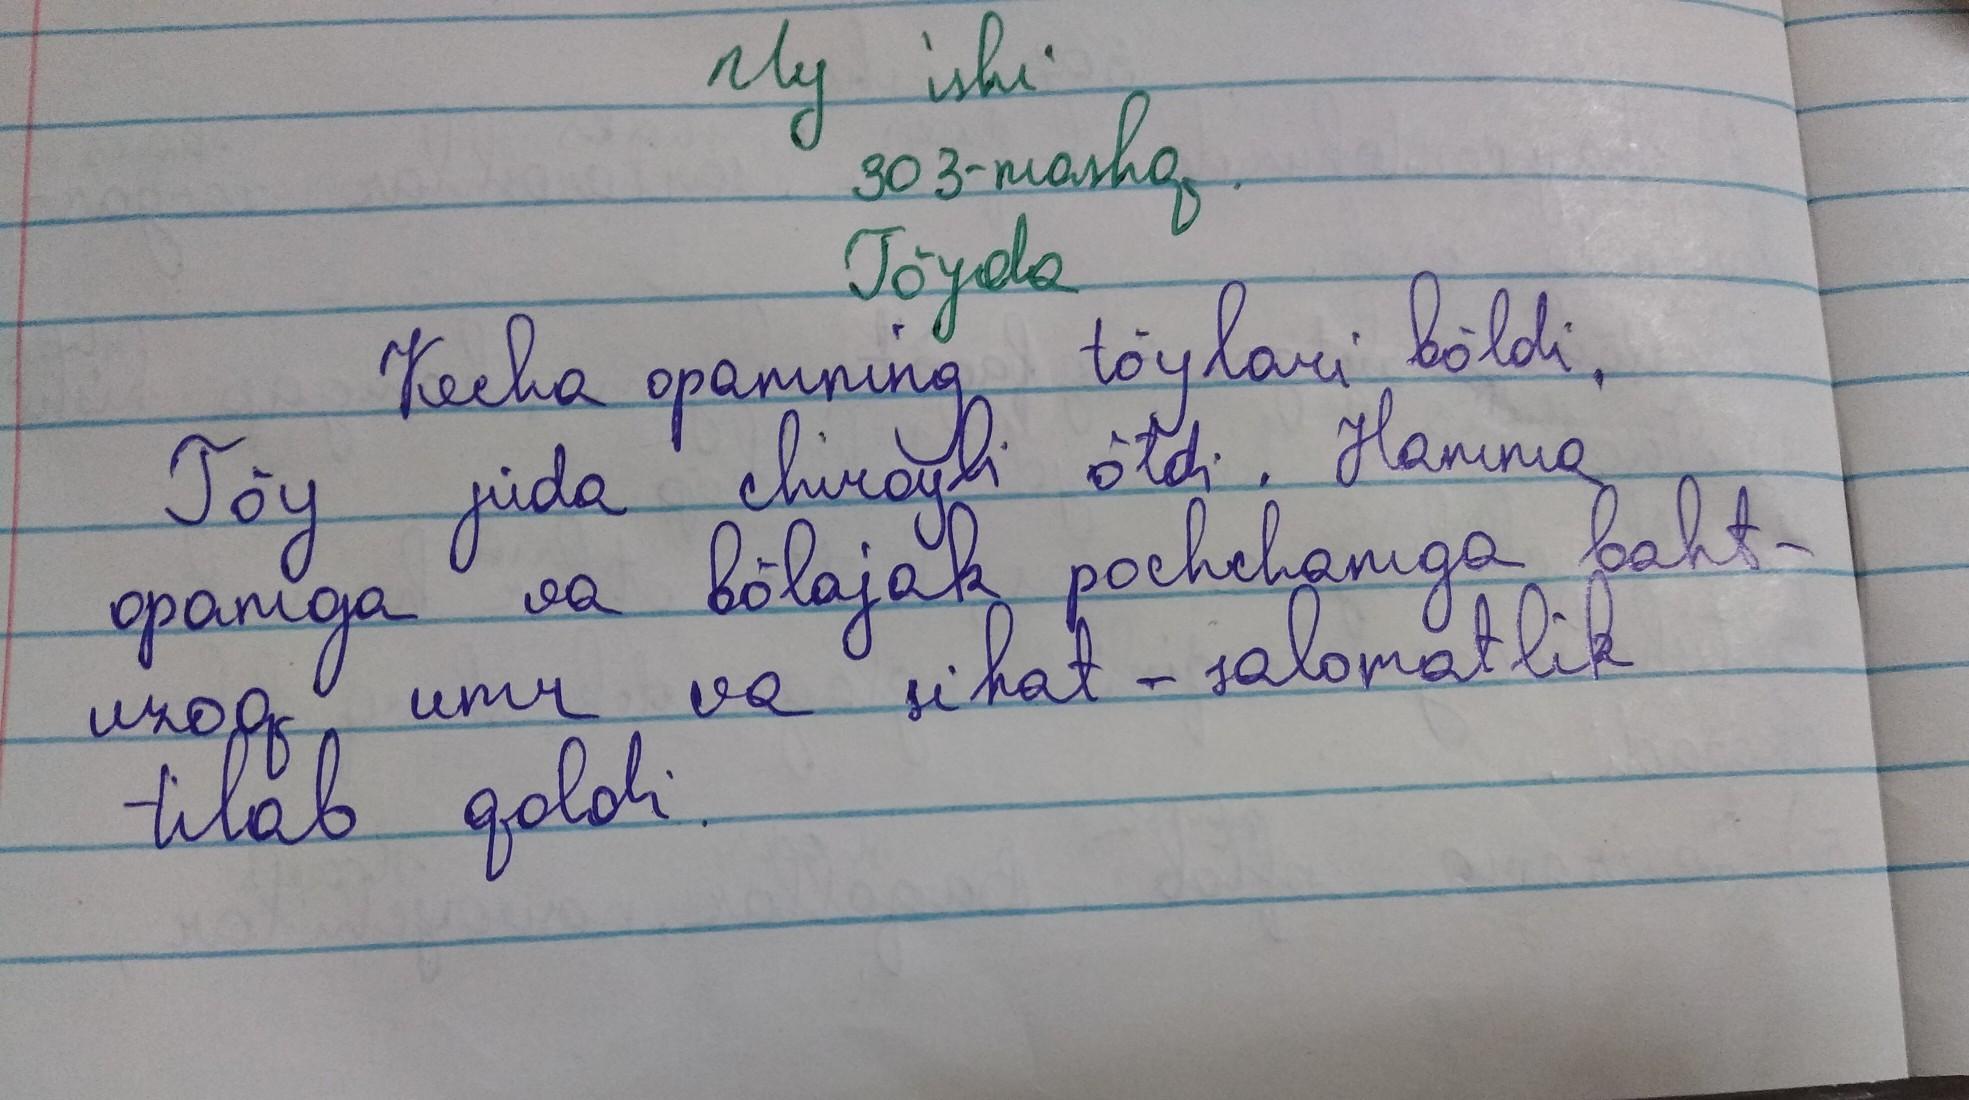 Uy ishi
303-mashq.
Tōyda
Kecha opamning tōylari bōldi.
Tōy juda chirōyli ōtdi. Hamma
opamga va bōlajak pochchamga baht-
uzoq umr va sihat-salomatlik
tilab qoldi.